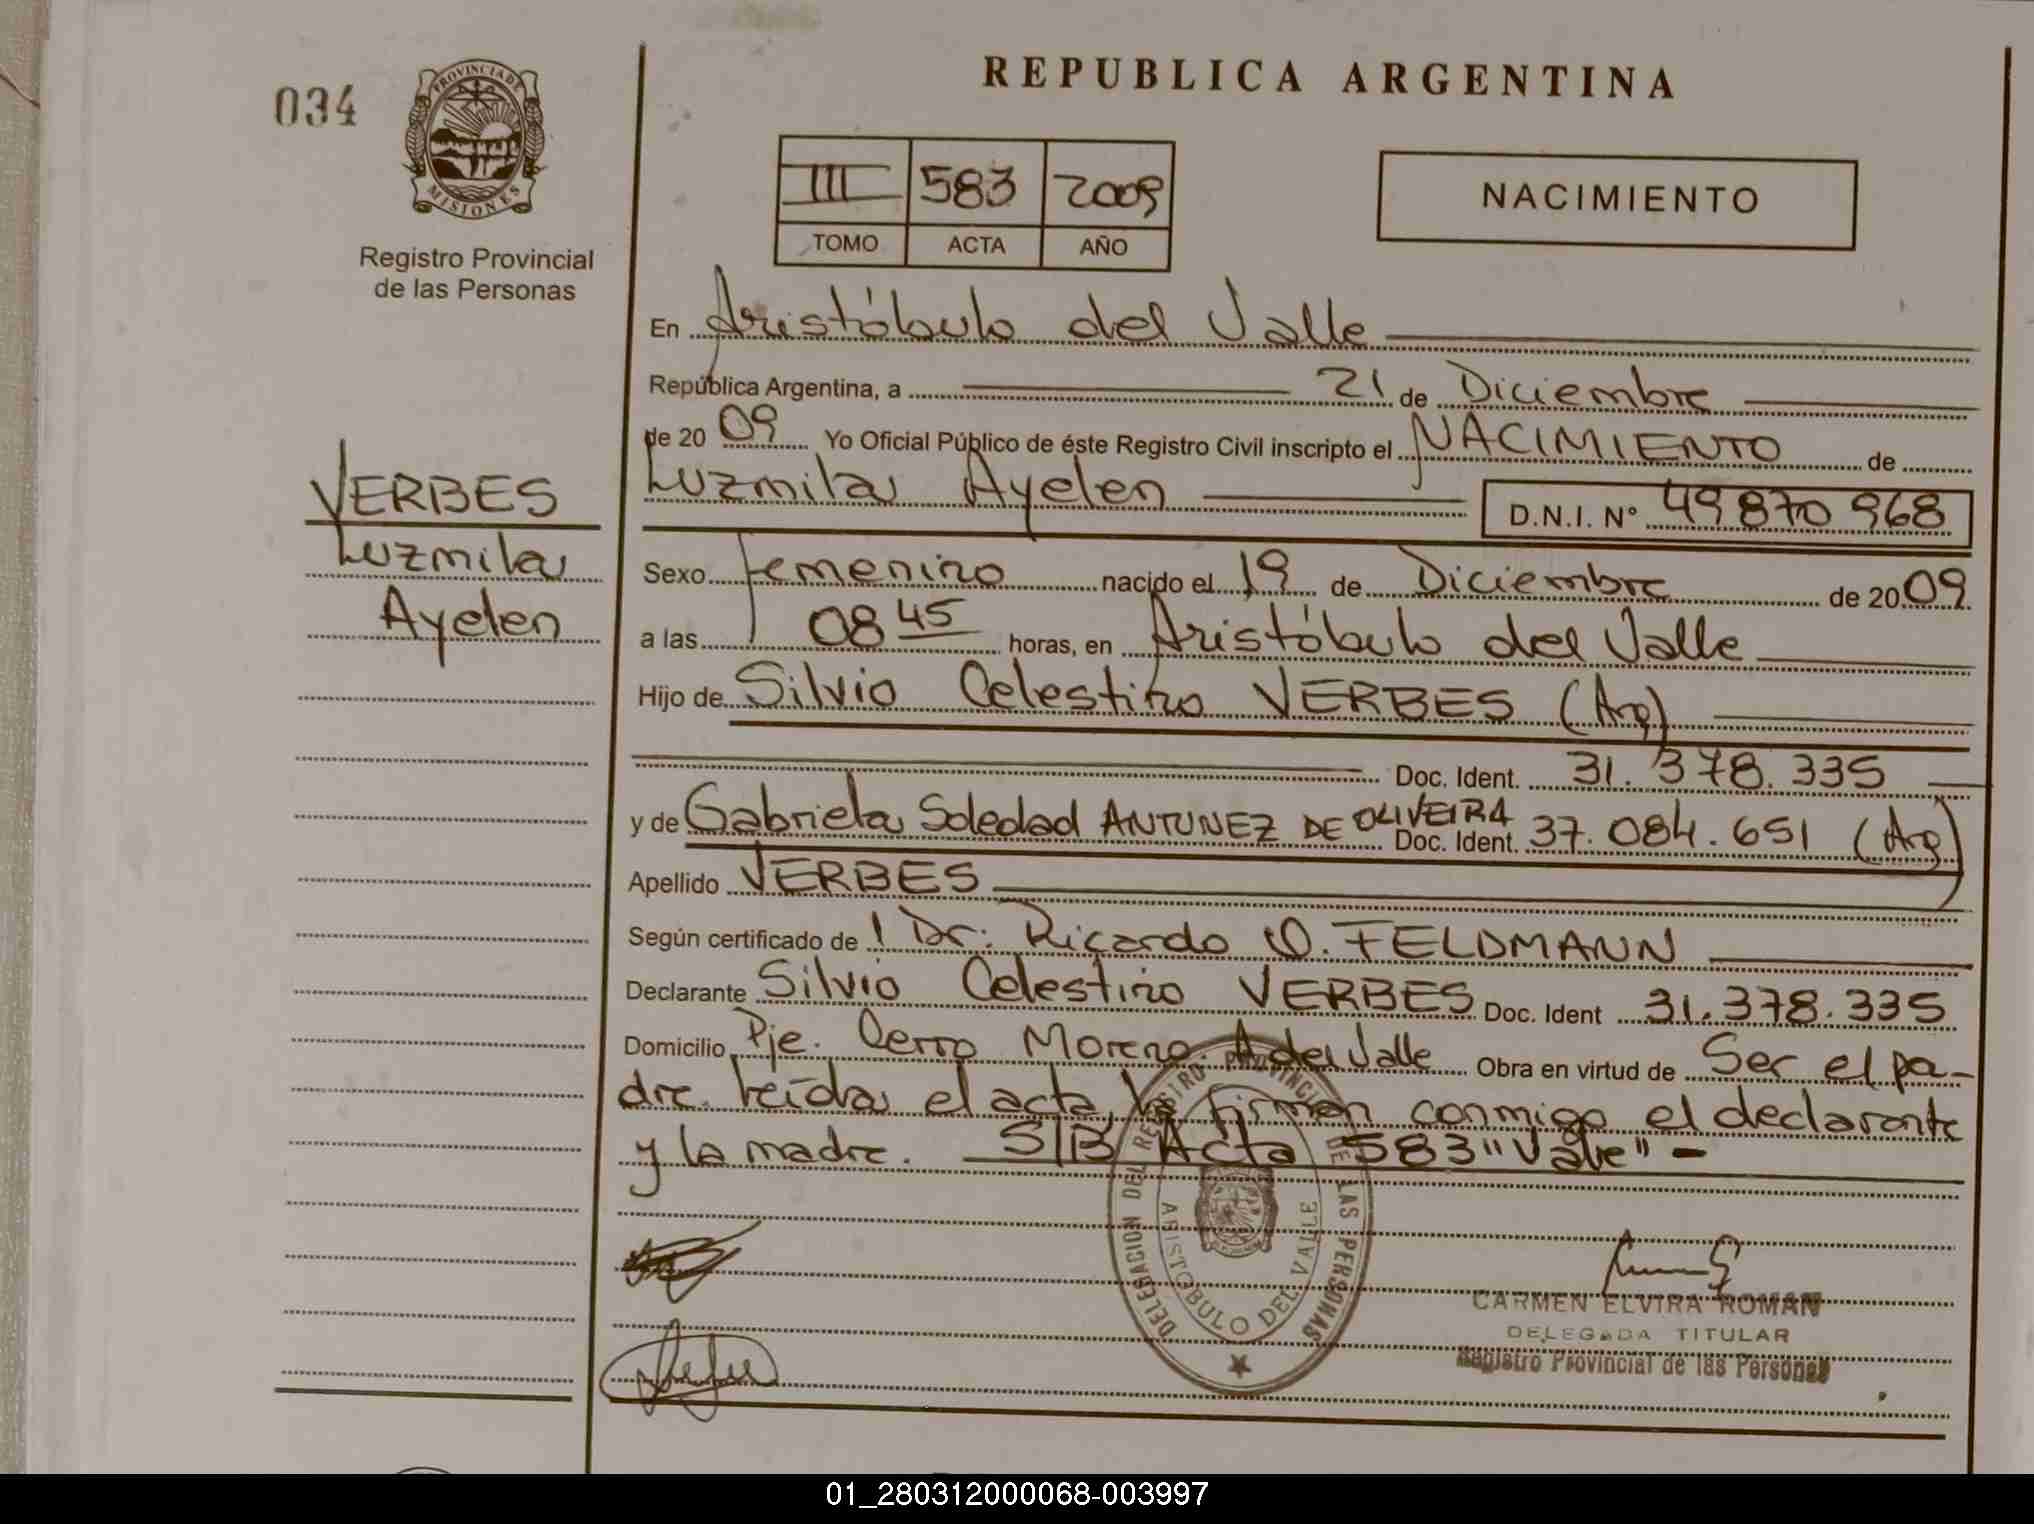 034
PROVINCIA DE
MISIONES
Registro Provincial
de las Personas
VERBES
Luzmila
Ayelen
REPUBLICA ARGENTINA
III 583 2009
TOMO ACTA AÑO
NACIMIENTO
En Aristóbulo del Valle
República Argentina, a 21 de Diciembre
de 20 09 Yo Oficial Público de éste Registro Civil inscripto el NACIMIENTO de
Luzmila Ayelen D.N.I. Nº 49870968
Sexo Femenino nacido el 19 de Diciembre de 2009
a las 08 45 horas, en Aristóbulo del Valle
Hijo de Silvio Celestino VERBES (Arg)
Doc. Ident. 31.378.335
y de Gabriela Soledad ANTUNEZ DE OLIVEIRA Doc. Ident. 37.084.651 (Arg)
Apellido VERBES
Según certificado de l Dr. Ricardo O. FELDMANN
Declarante Silvio Celestino VERBES Doc. Ident 31.378.335
Domicilio Pje. Cerro Moreno. A del Valle Obra en virtud de Ser el pa-
dre. Leída el acta la firman conmigo el declarante
y la madre. S/B Acta 583 "Vale" -
DELEGACION DEL REGISTRO PROVINCIAL DE LAS PERSONAS
ARISTOBULO DEL VALLE
CARMEN ELVIRA ROMAN
DELEGADA TITULAR
Registro Provincial de las Personas
01_280312000068-003997